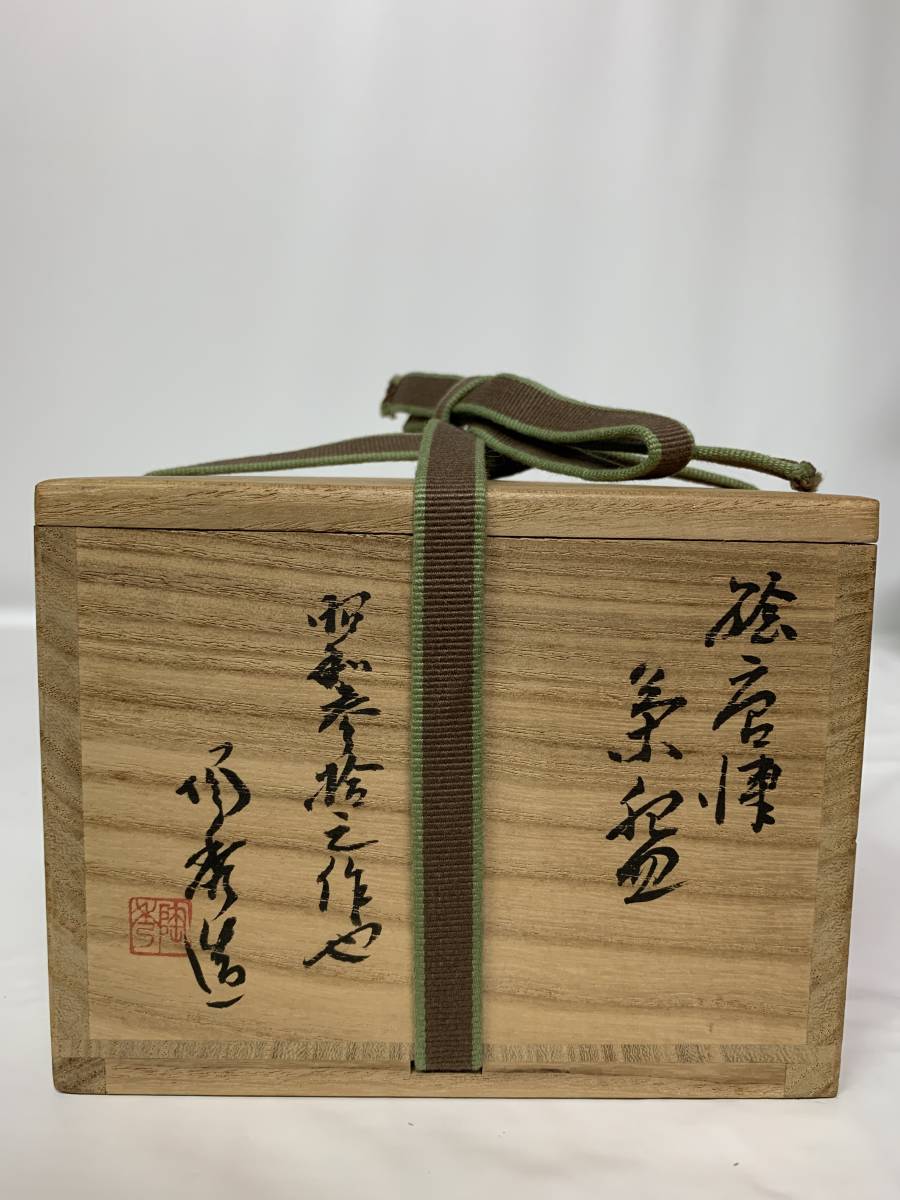 絵唐津
菓子盃
昭和参拾之作也
陶秀造
陶秀